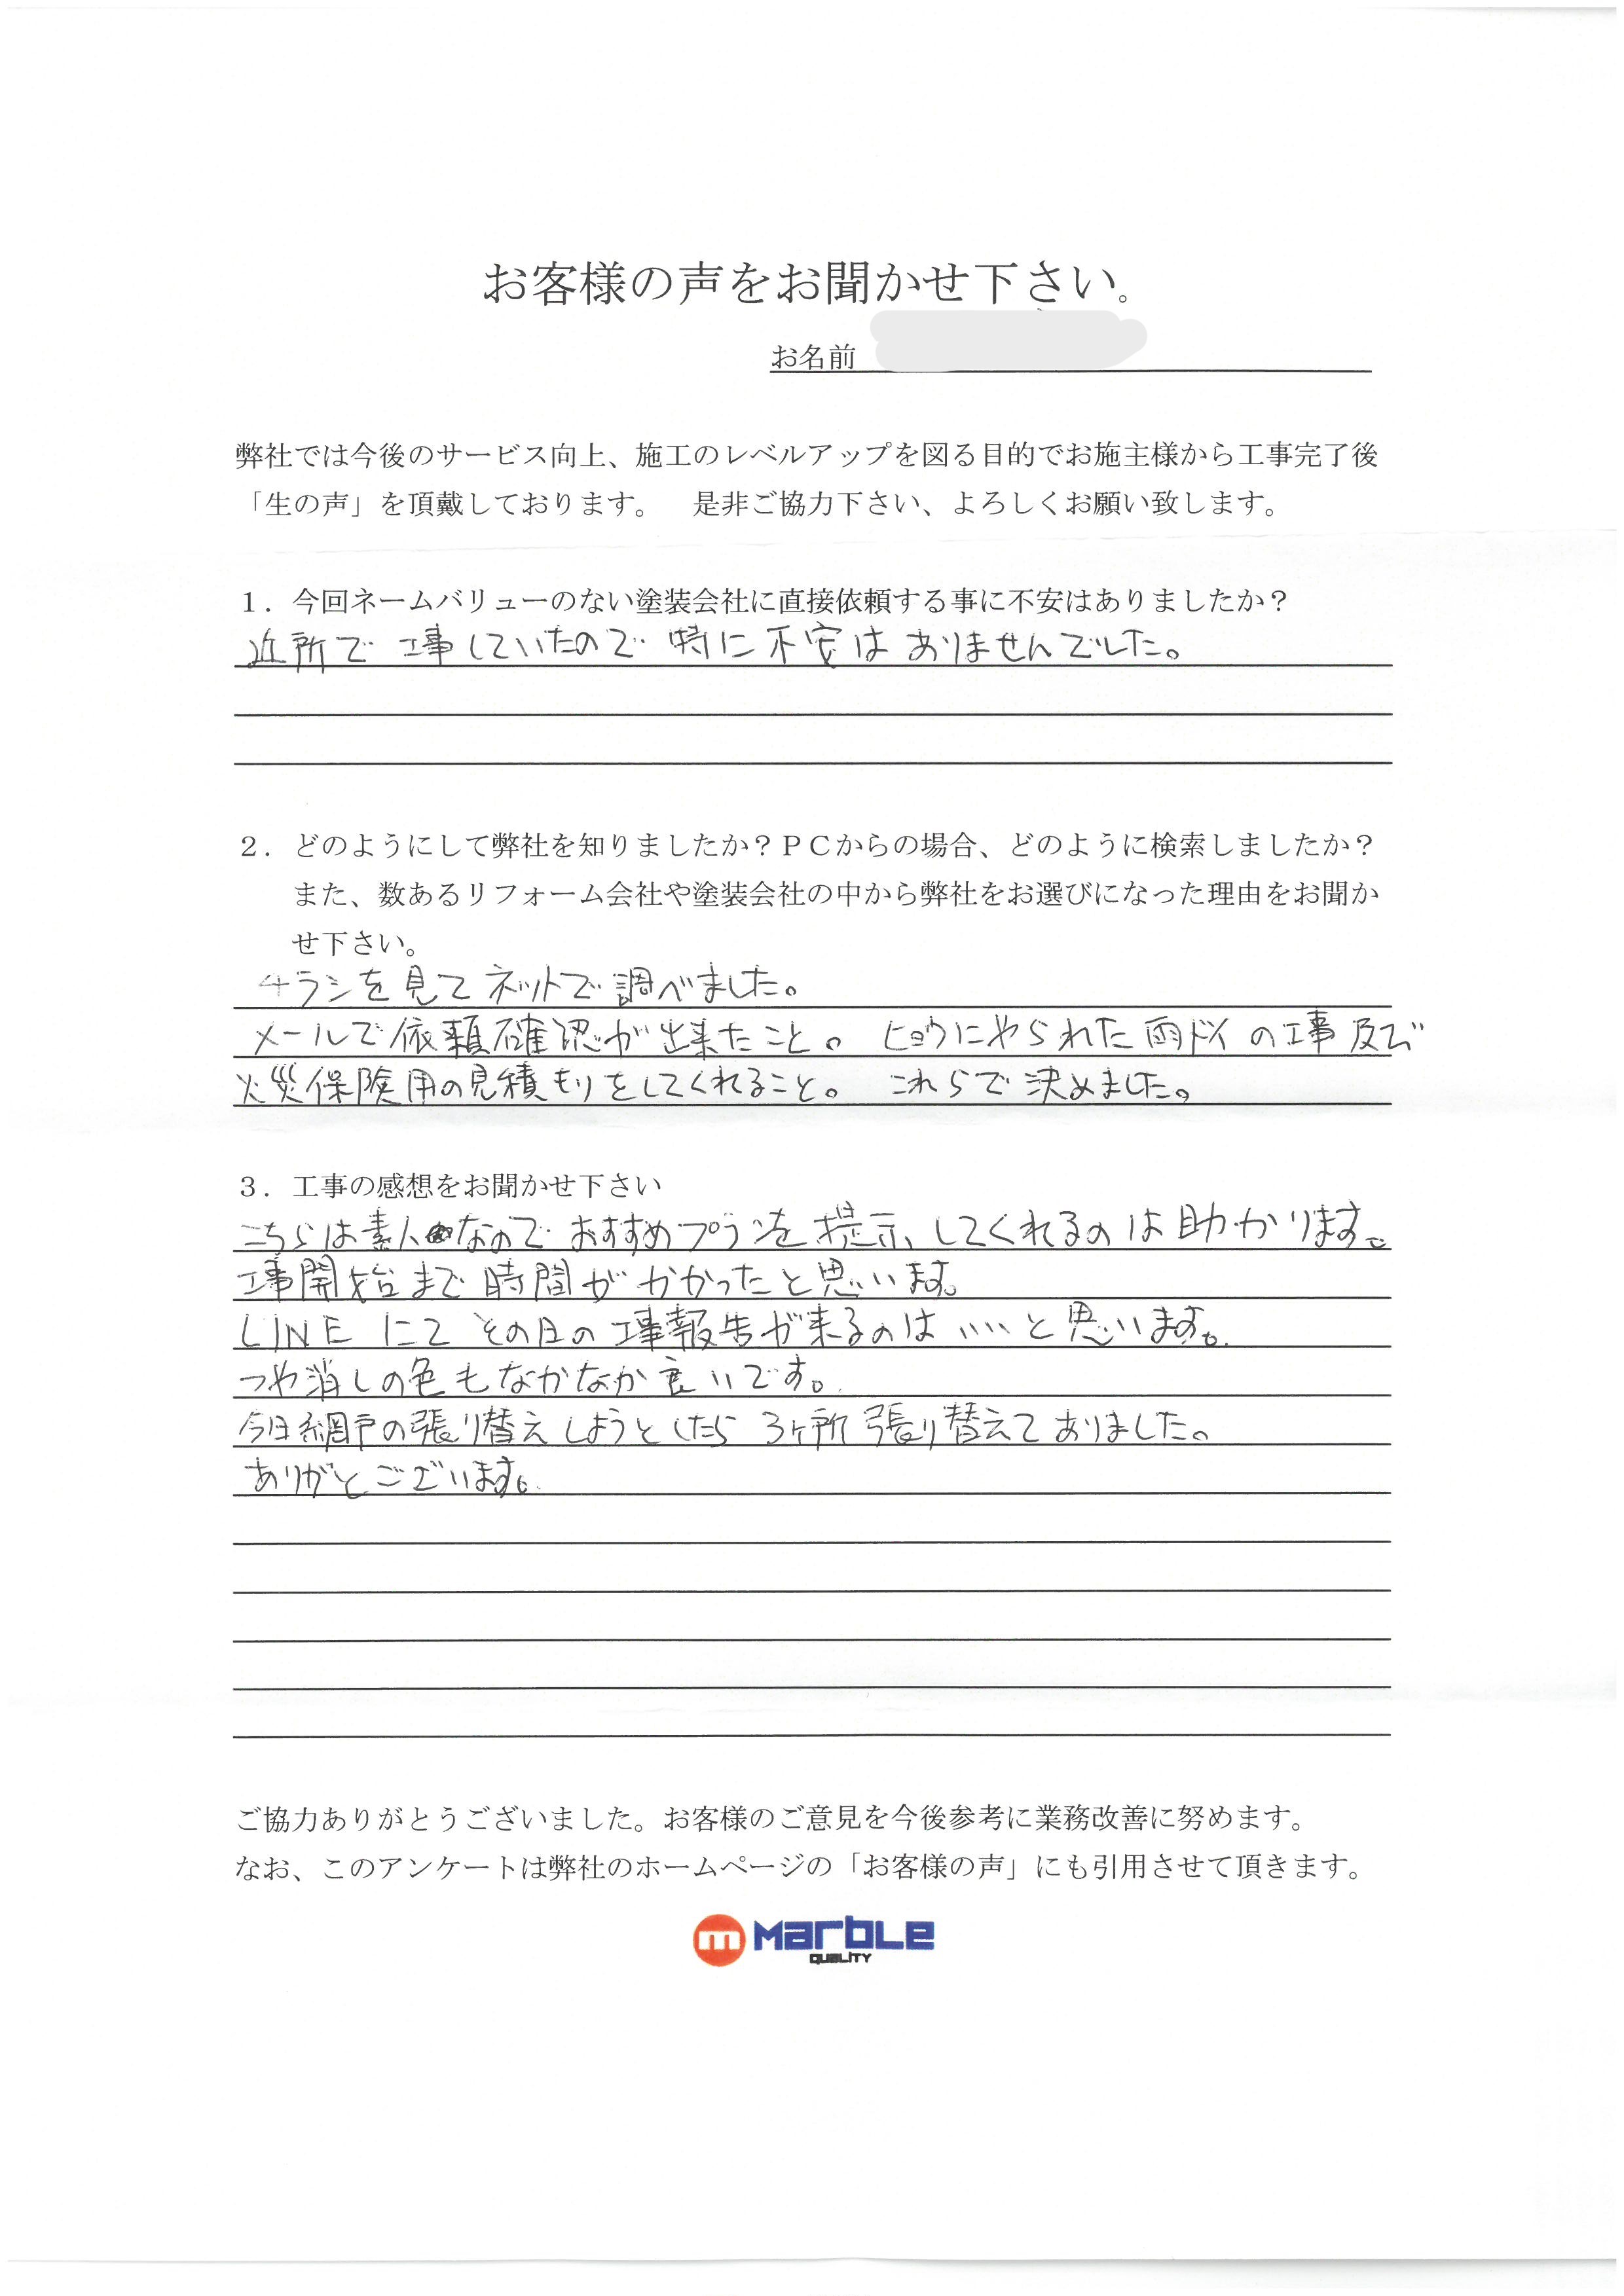 お客様の声をお聞かせ下さい。
お名前
弊社では今後のサービス向上、施工のレベルアップを図る目的でお施主様から工事完了後
「生の声」を頂戴しております。　是非ご協力下さい、よろしくお願い致します。
１．今回ネームバリューのない塗装会社に直接依頼する事に不安はありましたか？
近所で工事していたので特に不安はありませんでした。
２．どのようにして弊社を知りましたか？ＰＣからの場合、どのように検索しましたか？
また、数あるリフォーム会社や塗装会社の中から弊社をお選びになった理由をお聞か
せ下さい。
チラシを見てネットで調べました。
メールで依頼確認が出来たこと。ヒョウにやられた雨ドイの工事及び
火災保険用の見積もりをしてくれること。これらで決めました。
３．工事の感想をお聞かせ下さい
こちらは素人なのでおすすめプランを提示してくれるのは助かります。
工事開始まで時間がかかったと思います。
LINEにてその日の工事報告が来るのはいいと思います。
つや消しの色もなかなか良いです。
今日網戸の張り替えしようとしたら3ヶ所張り替えてありました。
ありがとございます。
ご協力ありがとうございました。お客様のご意見を今後参考に業務改善に努めます。
なお、このアンケートは弊社のホームページの「お客様の声」にも引用させて頂きます。
m marble
QUALITY